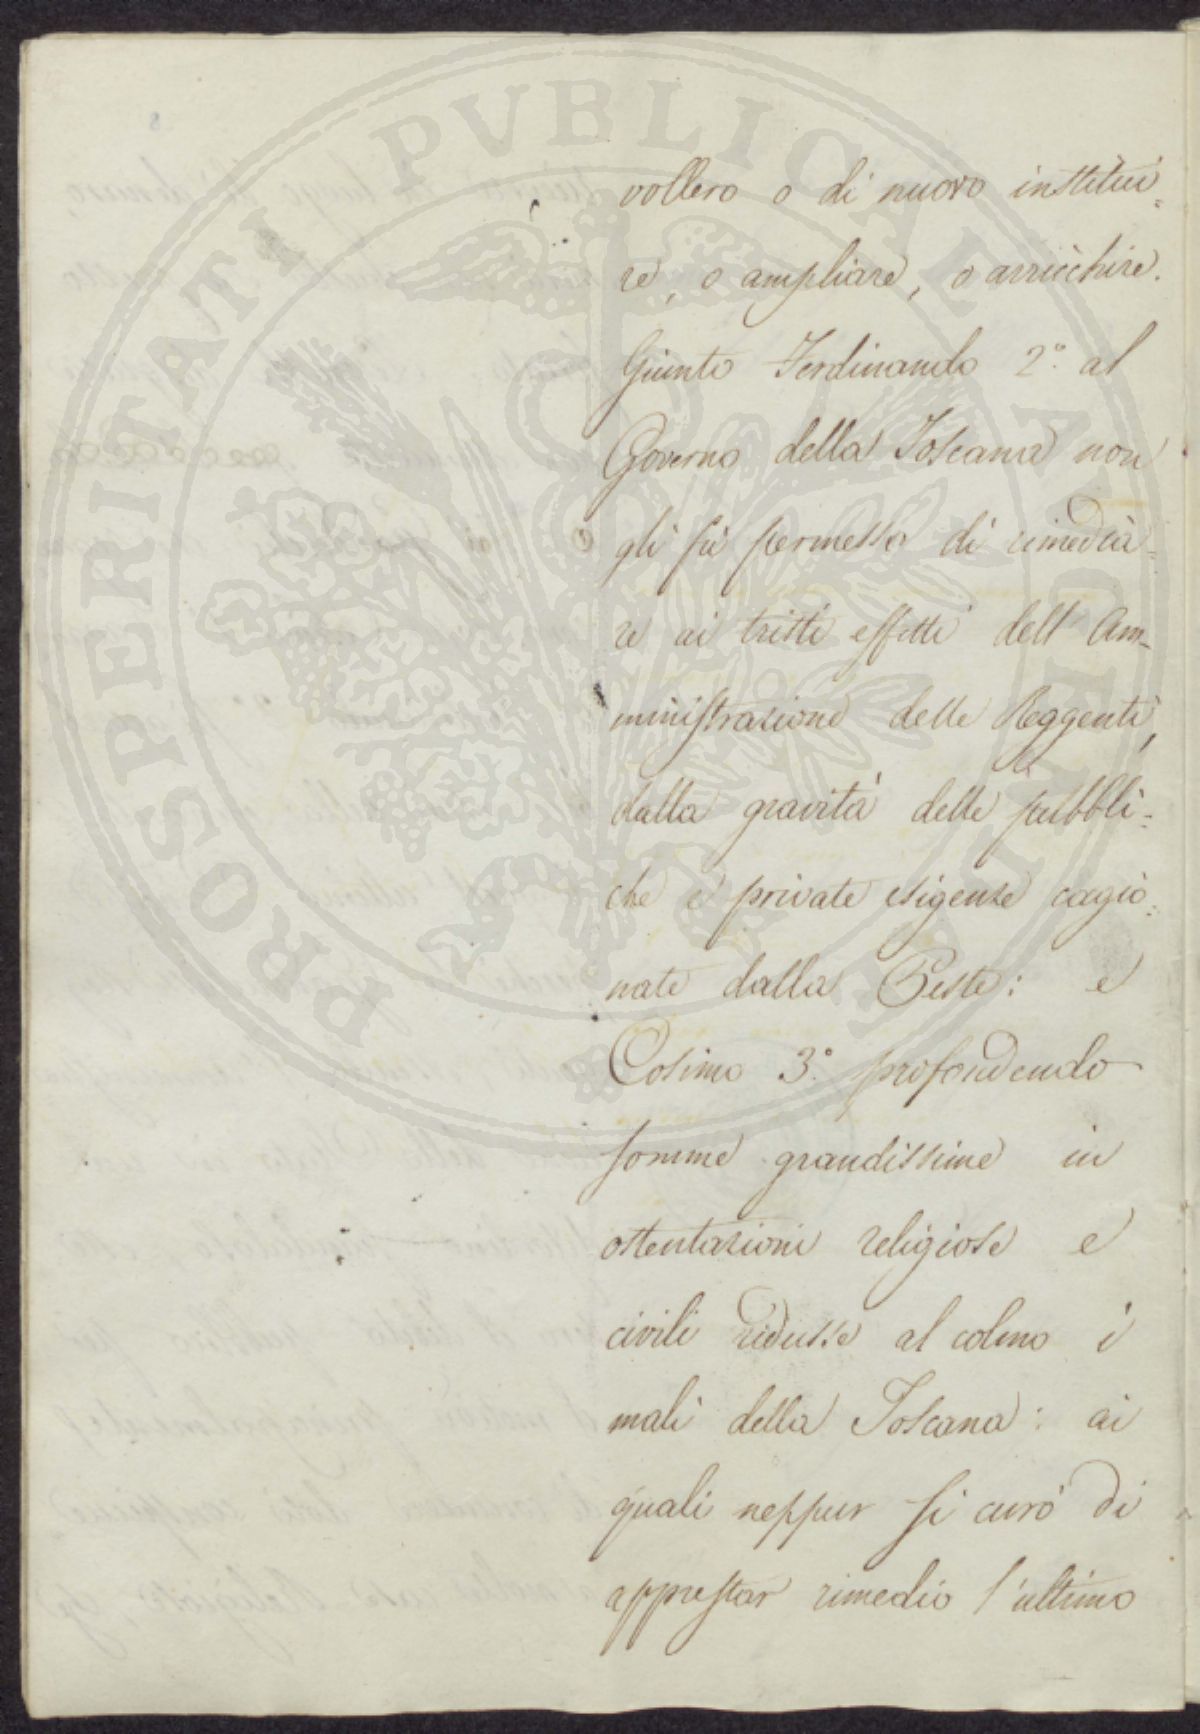 vollero o di nuovo institui=
re, o ampliare, o arricchire.
Giunto Ferdinando 2.º al
Governo della Toscana non
gli fù permesso di rimedia=
re ai tristi effetti dell' Am=
ministrazione delle Reggenti,
dalla gravità delle pubbli=
che e private esigenze cagio=
nate dalla Peste: e
Cosimo 3.º profondendo
somme grandissime in
ostentazioni religiose e
civili ridusse al colmo i
mali della Toscana: ai
quali neppur si curò di
apprestar rimedio l'ultimo
PROSPERITATI PVBLICAE AVGENDAE